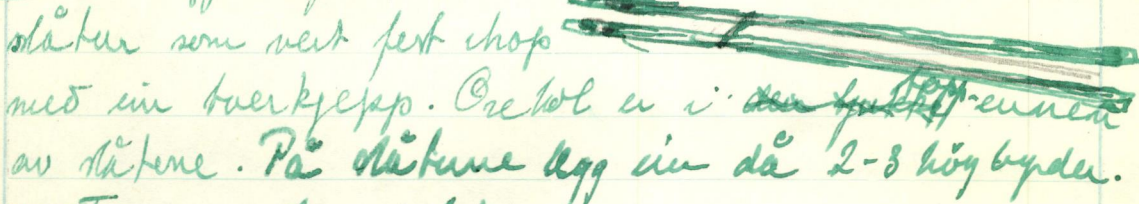 slåtur som vert fest ihop
med ein tverrkjepp. Ore hol er i topp-ennen
av slåtene. På slåtune legg ein då 2-3 höybyrder.